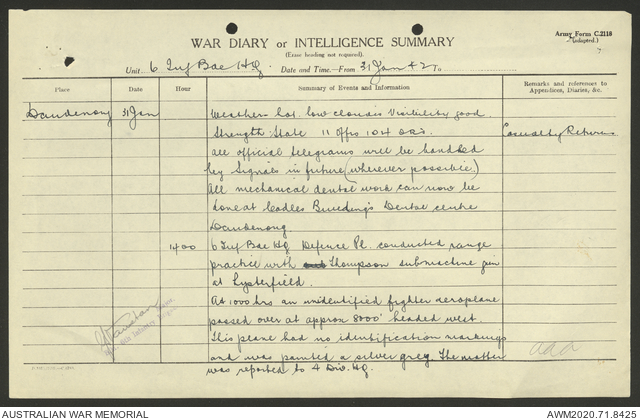 Army Form C.2118
(adapted.)
WAR DIARY or INTELLIGENCE SUMMARY
(Erase heading not required).
Unit 6 Inf Bde HQ. Date and Time—From 31 Jan 42 To
Place Date Hour Summary of Events and Information Remarks and references to Appendices, Diaries, &c.
Dandenong 31 Jan Weather hot, low clouds Visibility good.
Strength State 11 Offrs 104 ORs. Casualty Returns
All official telegrams will be handled
by Signals in future (wherever possible.)
All mechanical dental work can now be
done at Cadles Buildings Dental centre
Dandenong
1400 6 Inf Bde HQ Defence Pl. conducted range
practice with Thompson submachine gun
at Lysterfield.
At 1000 hrs an unidentified fighter aeroplane
passed over at approx 8000' headed west.
This plane had no identification markings
and was painted a silver grey. The matter
was reported to 4 Div. HQ.
AUSTRALIAN WAR MEMORIAL AWM2020.71.8425